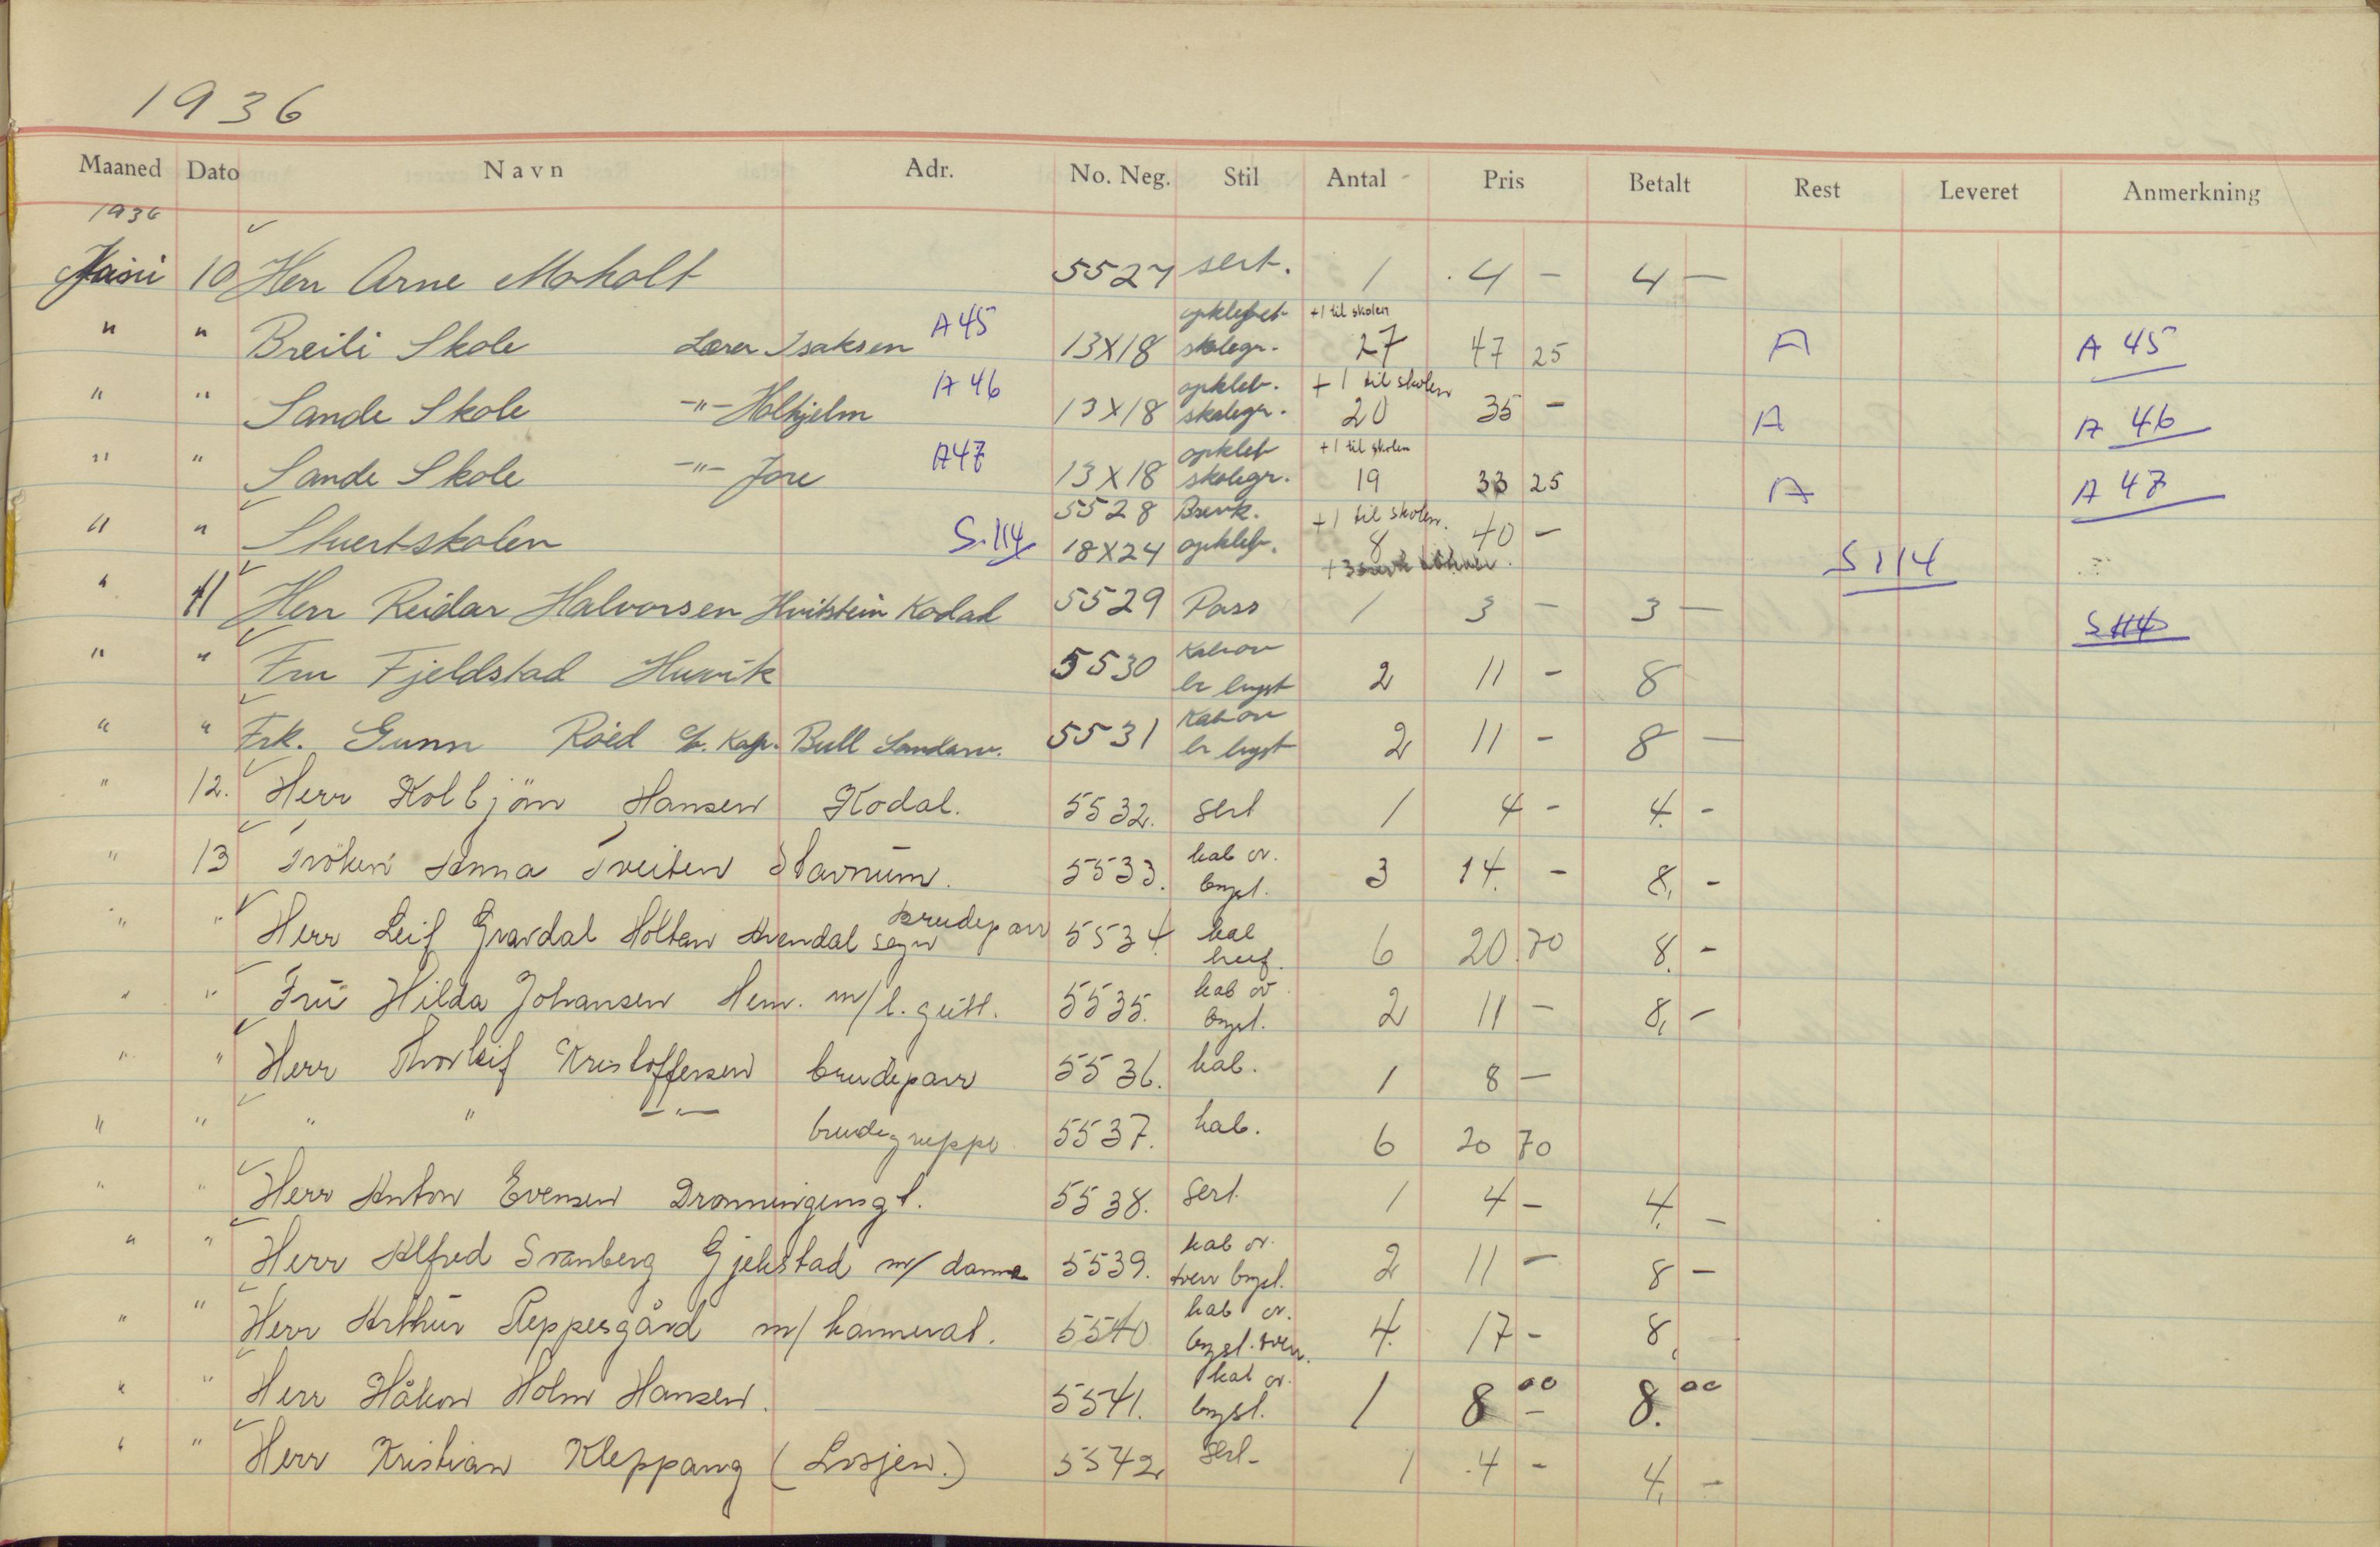 1936
Maaned Dato Navn Adr. No. Neg. Stil Antal Pris Betalt Rest Leveret Anmerkning
1936
Juni 10 Herr Arne Moholt 5527 sert. 1 4 - 4 -
" " Breili Skole Lærer Isaksen A 45 13X18 opklebet skolegr. +1 til skolen 27 47 25 A A 45
" " Sande Skole -"- Holhjelm A 46 13X18 opkleb. skolegr. +1 til skolen 20 35 - A A 46
" " Sande Skole -"- Jore A 47 13X18 opkleb skolegr. +1 til skolen 19 33 25 A A 47
" " Stuertskolen S.114 5528 18X24 Brevk. opkleb. +1 til skolen. 8 40 - +3 S 114
" 11 Herr Reidar Halvorsen Hvitstein Kodal 5529 Pass 1 3 - 3 - S 114
" " Fru Fjeldstad Huvik 5530 Kab ov br bryst 2 11 - 8
" " Frk. Gunn Röed c/o. Kap. Bull Sandarv. 5531 Kab ov br bryst 2 11 - 8 -
" 12. Herr Kolbjörn Hansen Kodal. 5532. sert 1 4 - 4. -
" 13 Fröken Anna Tveiten Stavnum. 5533. kab ov. bryst. 3 14. - 8. -
" " Herr Leif Gravdal Holtan Arendal sogn Brudepar 5534. kab 6 20.70 8. -
" " Frü Hilda Johansen Hem. m/l. gutt. 5535. kab ov bryst. 2 11 - 8. -
" " Herr Thorleif Kristoffersen brudepar 5536. kab. 1 8 -
" " " " -"- brudegruppe 5537. kab. 6 20 70
" " Herr Anton Evensen Dronningensgt. 5538. sert. 1 4 - 4. -
" " Herr Alfred Svanberg Gjekstad m/ dame 5539. kab ov. tver bryst. 2 11 - 8 -
" " Herr Arthür Reppesgård m/ kamerat. 5540 kab ov. bryst. tver. 4. 17 - 8.
" " Herr Håkon Holm Hansen. 5541. kab ov. bryst. 1 8 00 - 8. 00
" " Herr Kristian Kleppang (Losjen.) 5542. sert- 1 4 - 4. -